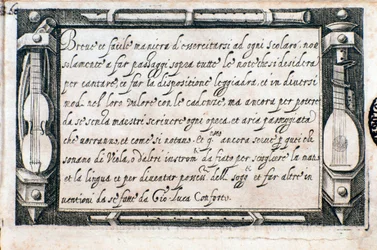 Breve et facile maniera d'essercitarsi ad ogni scolaro, non
solamente a far passaggi sopra tutte le note che si desidera
per cantare, et far la dispositione leggiadra, et in diversi
modi nel loro valore con le cadenze, ma ancora per potere
da se senza maestri scrivere ogni opera, et aria passeggiata
che vorranno, et come si notano. Et ancora serve p quei che
sonano di Viola, o d'altri instrom.ti da fiato per sciogliere la mano
et la lingua et per diventar possess. delli sogg.ti et far altre in
ventioni da se fatte da Gio. Luca Conforto.